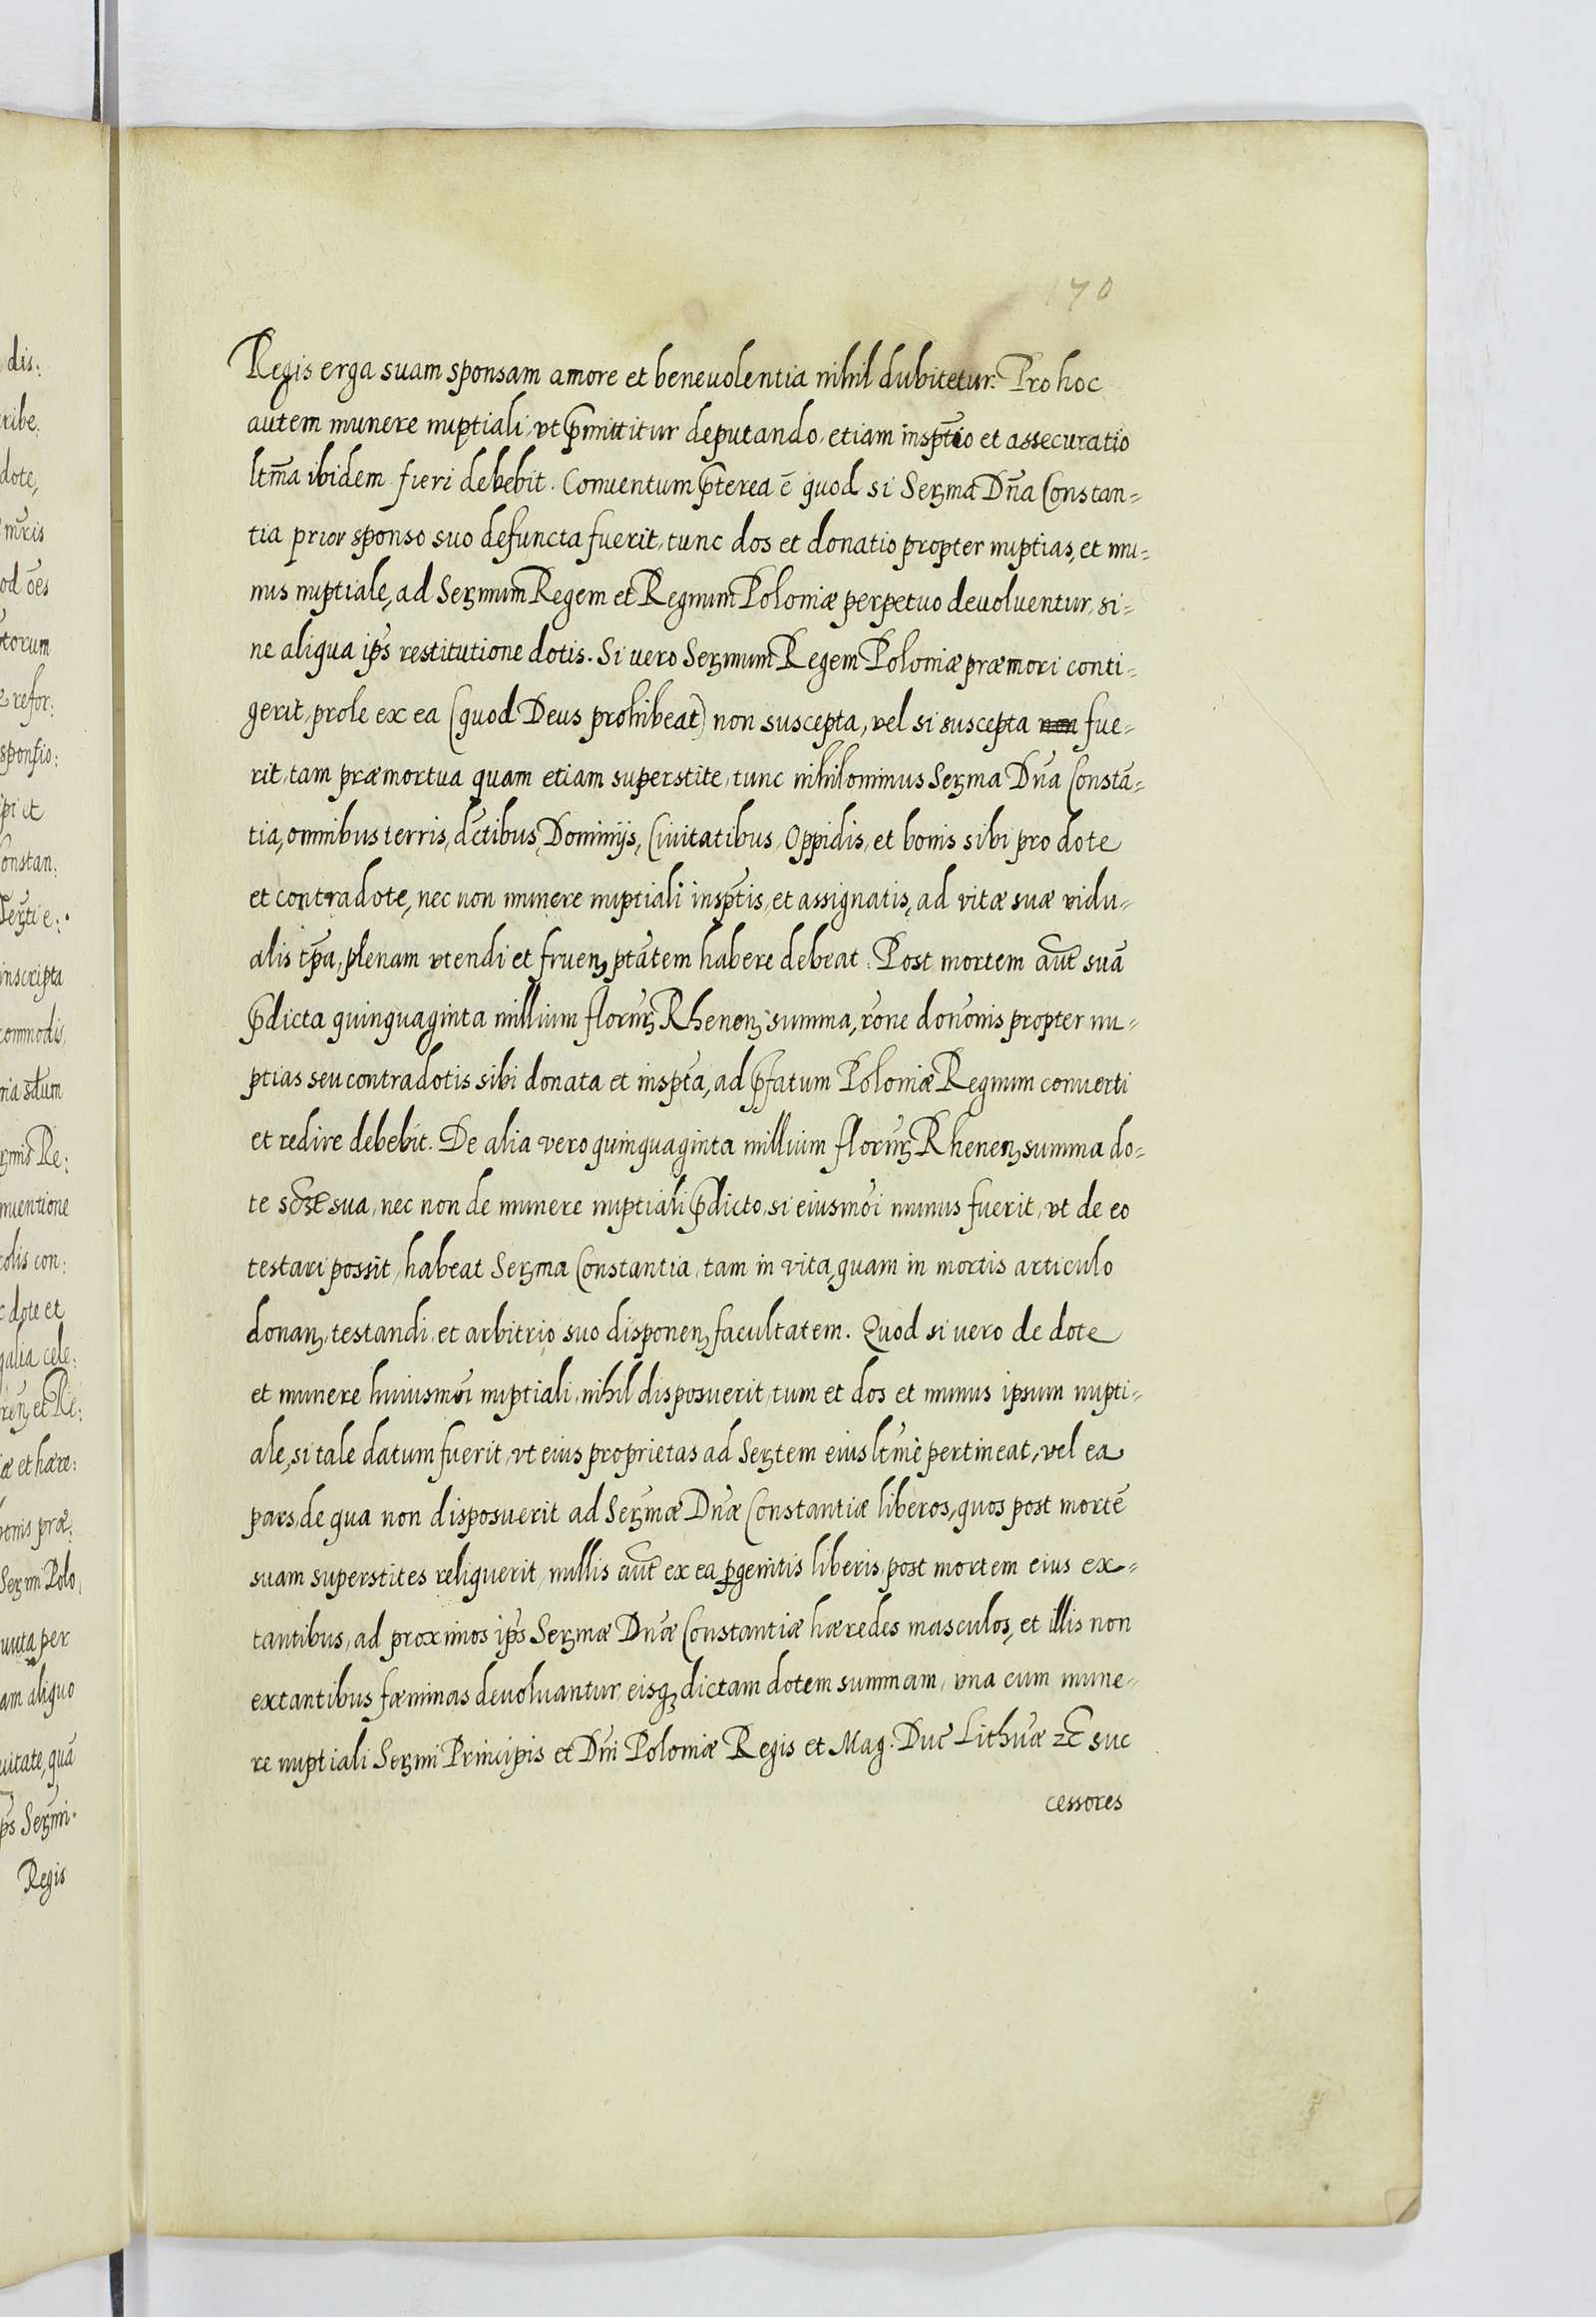 170
Regis erga suam sponsam amore et beneuolentia nihil dubitetur. Pro hoc
autem munere nuptiali, vt p̄mittitur deputando, etiam insp̄tio et assecuratio
ltm̄a ibidem fieri debebit. Conuentum p̄terea ē quod si Serꝫma Dn̄a Constan-
tia prior sponso suo defuncta fuerit, tunc dos et donatio propter nuptias, et mu-
nus nuptiale, ad Serꝫmum Regem et Regnum Poloniæ perpetuo deuoluentur, si-
ne aliqua ip̄s restitutione dotis. Si uero Serꝫmum Regem Poloniæ præmori conti-
gerit, prole ex ea (quod Deus prohibeat) non suscepta, vel si suscepta non fue-
rit, tam præmortua quam etiam superstite, tunc nihilominus Serꝫma Dn̄a Constā-
tia, omnibus terris, dc̄tibus, Dominijs, Ciuitatibus, Oppidis, et bonis sibi pro dote
et contradote, nec non munere nuptiali insp̄tis, et assignatis, ad vitæ suæ vidu-
alis tp̄a, plenam vtendi et fruenꝫ ptātem habere debeat. Post mortem aut̄ suā
p̄dicta quinquaginta millium florun̄ꝫ Rhenenꝫ summa, rōne donōnis propter nu-
ptias seu contradotis sibi donata et insp̄ta, ad p̄fatum Poloniæ Regnum conuerti
et redire debebit. De alia vero quinquaginta millium florun̄ꝫ Rhenenꝫ summa do-
te sua, nec non de munere nuptiali p̄dicto, si eiusmōi munus fuerit, vt de eo
testari possit, habeat Serꝫma Constantia, tam in vita, quam in mortis articulo
donanꝫ, testandi, et arbitrio suo disponenꝫ facultatem. Quod si vero de dote
et munere huiusmōi nuptiali, nihil disposuerit, tum et dos et munus ipsum nupti-
ale, si tale datum fuerit, vt eius proprietas ad Serꝫtem eius ltm̄e pertineat, vel ea
pars, de qua non disposuerit ad Serꝫmæ Dn̄æ Constantiæ liberos, quos post mortē
suam superstites reliquerit, nullis aut̄ ex ea ꝓgenitis liberis, post mortem eius ex-
tantibus, ad proximos ip̄s Serꝫmæ Dn̄æ Constantiæ hæredes masculos, et illis non
extantibus fæminas deuoluantur, eisqꝫ dictam dotem summam, vna cum mune-
re nuptiali Serꝫmi Principis et Dn̄i Poloniæ Regis et Mag. Duc̄ Lithuǣ zc̄ suc
cessores